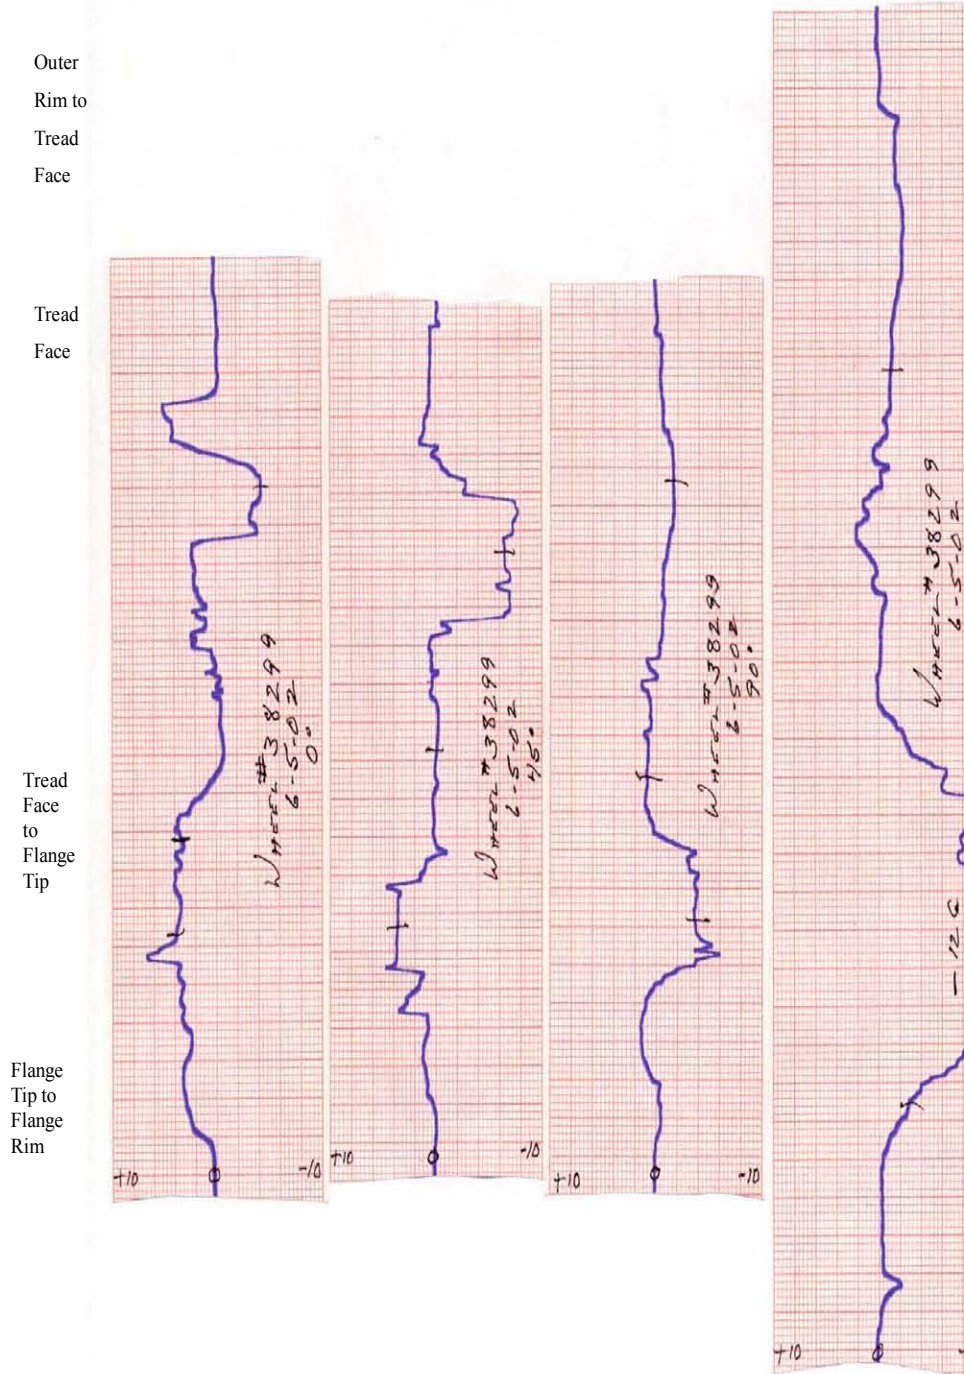 Outer
Rim to
Tread
Face
Tread
Face
Tread
Face
to
Flange
Tip
Flange
Tip to
Flange
Rim
WHEEL #38299
6-5-02
0°
+10 0 -10
WHEEL #38299
6-5-02
45°
+10 0 -10
WHEEL #38299
6-5-02
90°
+10 0 -10
WHEEL #38299
6-5-02
+10 0